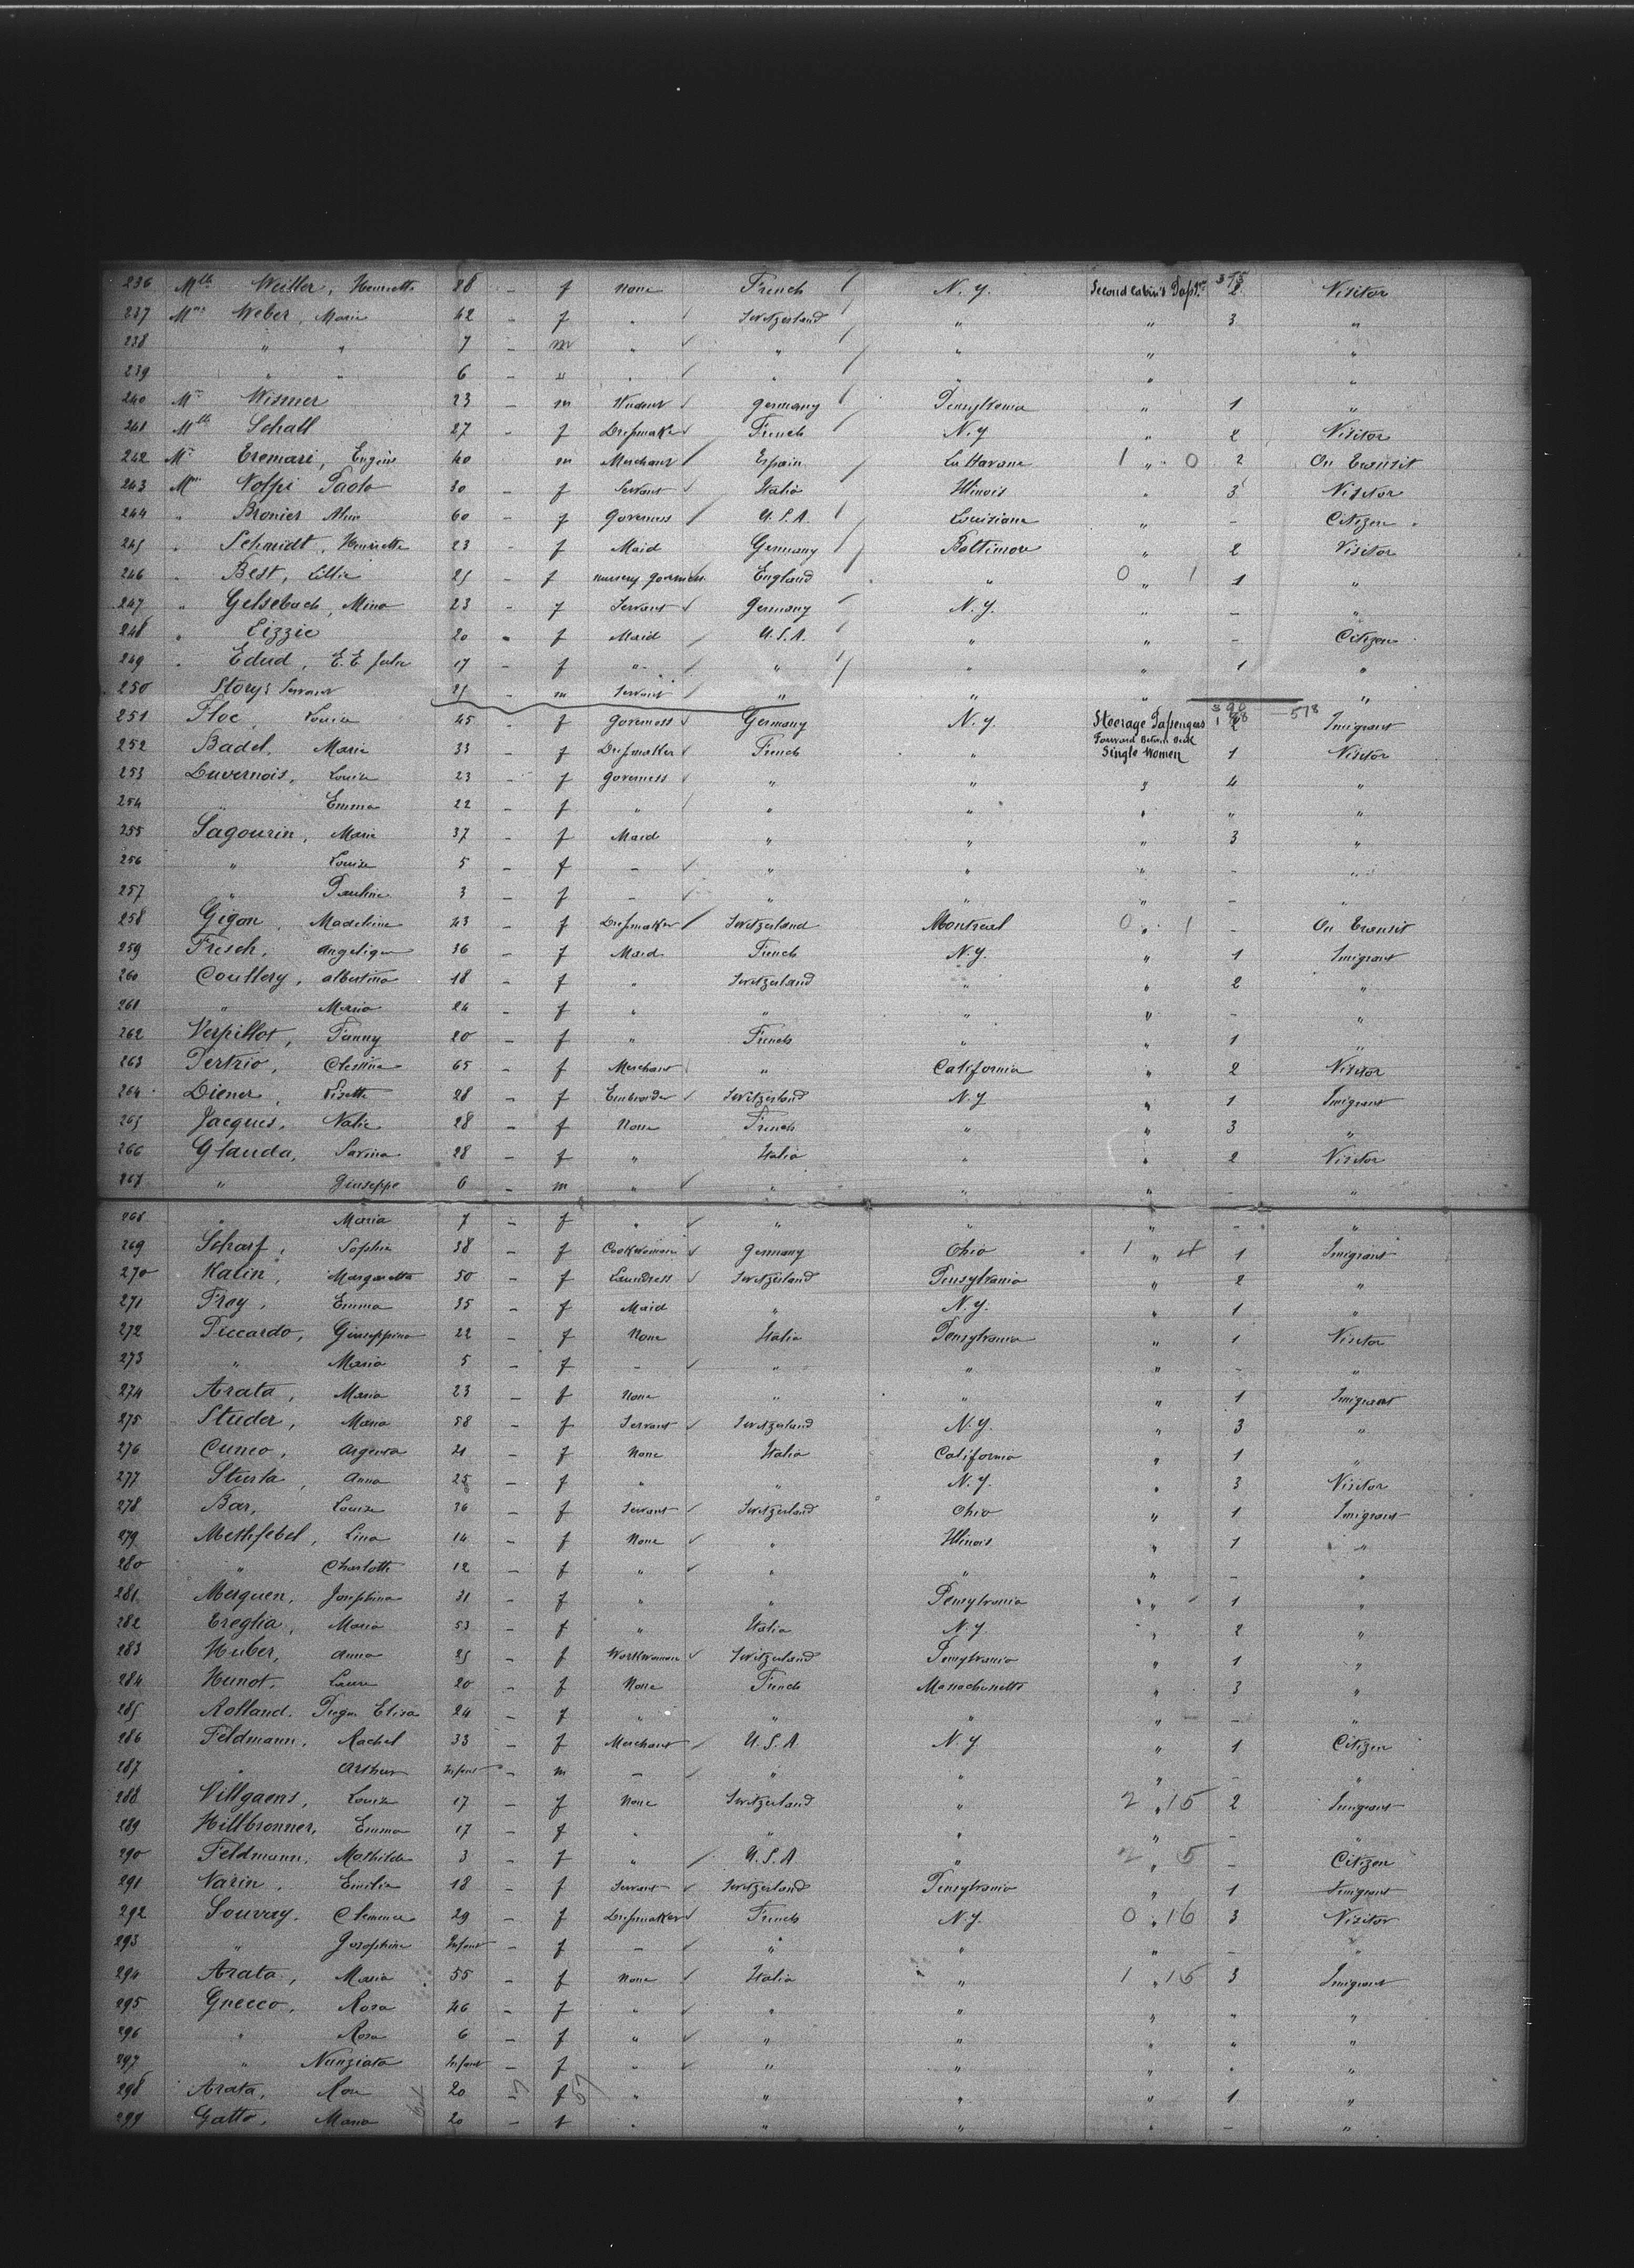 236 Mlle Weiller, Henriette 28 - f none French N.Y. Second Cabin's Pass. 2 Visitor
237 Mme Weber, Marie 42 - f " Switzerland " " 3 "
238 " " 7 - m " " " " "
239 " " 6 - " " " " " "
240 Mr Wismer 23 - m Germany " 1 "
241 Mlle Schall 27 - f Dressmaker French N.Y " 2 Visitor
242 Mr Tremari, Eugene 40 m Merchant Espain La Havane 1 " 0 2 On Transit
243 Mme Volpi Paola 30 - f Servant Italia Illinois " 3 Visitor
244 " Bronier Aline 60 - f Governess U.S.A. Louisiane " - Citizen
245 " Schmidt, Henriette 23 - f Maid Germany Baltimore " 2 Visitor
246 " Best, Lillie 25 - f nursery governess England " 0 " 1 1 "
247 " Gelsebach, Mina 23 - f Servant Germany N.Y. " - "
248 " Lizzie 20 - f Maid U.S.A. " " - Citizen
249 " Edud, E.E Julie 17 - f " " " " 1 "
250 Storys Servant 25 - m Servant " " " "
251 Floc, Louise 45 - f governess Germany N.Y. Steerage Passengers 2 Imigrant
Forward Between Deck
252 Badel, Marie 33 - f Dressmaker French " Single Women 1 Visitor
253 Duvernois, Louise 23 - f governess " " " 4 "
254 " Emma 22 - f " " " " " "
255 Sagourin, Marie 37 - f Maid " " " 3 "
256 " Louise 5 - f - " " " - "
257 " Pauline 3 - f - " " " - "
258 Gigon, Madeleine 43 - f Dressmaker Switzerland Montreal 0 " 1 - On Transit
259 Fresch, Angelique 36 - f Maid French N.Y. " 1 Imigrant
260 Coullery, albertine 18 - f " Switzerland " " 2 "
261 " Maria 24 - f " " " " - "
262 Verpillot, Fanny 20 - f " French " " 1 "
263 Pertrio, 65 - f Merchant " California " 2 Visitor
264 Diener, Lisette 28 - f Embroider Switzerland N.Y " 1 Imigrant
265 Jacques, Natie 28 - f None French " " 3 "
266 Glauda, Savina 28 - f " Italia " " 2 Visitor
267 " Giuseppe 6 - m " " " " - "
268 " Maria 7 - f " " " " - "
269 Scharf, Sophia 38 - f Cookwoman Germany Ohio 1 " 4 1 Imigrant
270 Kalin, Margaretta 50 - f Laundress Switzerland Pensylvania " 2 "
271 Frey, Emma 35 - f Maid " N.Y. " 1 "
272 Piccardo, Giuseppina 22 - f None Italia Pensylvania " 1 Visitor
273 " Maria 5 - f - " " " - "
274 Arata, Maria 23 - f None " " " 1 Imigrant
275 Studer, Maria 58 - f Servant Switzerland N.Y. " 3 "
276 Cuneo, Argenta 21 - f None Italia California " 1 "
277 Sturla, Anna 25 - f " " N.Y. " 3 Visitor
278 Bar, Louise 36 - f Servant Switzerland Ohio " 1 Imigrant
279 Methfebel, Lina 14 - f None " Illinois " 1 "
280 " Charlotte 12 - f " " " " - "
281 Merguen, Josephina 31 - f " " Pensylvania " 1 "
282 Treglia, Maria 53 - f " Italia N.Y. " 2 "
283 Huber, Anna 25 - f Workwoman Switzerland Pensylvania " 1 "
284 Hunot, Laure 20 - f None French Massachusetts " 3 "
285 Rolland. Elisa 24 - f " " " " - "
286 Feldmann, Rachel 33 - f Merchant U.S.A. N.Y " 1 Citizen
287 " Arthur Infant - m - " " " - "
288 Villgaens, Louise 17 - f None Switzerland " 2 " 15 2 Imigrant
289 Hillbronner, Emma 17 - f " " " " - "
290 Feldmann, Mathilde 3 - f " U.S.A " 2 " 5 - Citizen
291 Narin, Emilie 18 - f Servant Switzerland Pensylvania " 1 Imigrant
292 Souvray, Clemence 29 - f Dressmaker French N.Y. 0 " 16 3 Visitor
293 " Josephine Infant - f - " " " - "
294 Arata, Maria 55 - f None Italia " 1 " 15 3 Imigrant
295 Grecco, Rosa 26 - f " " " " " "
296 " Rosa 6 - f " " " " " "
297 " Nunziata Infant - f " " " " " "
298 Arata, Rosa 20 - f " " " " 1 "
299 Gatto, Maria 20 - f " " " " - "